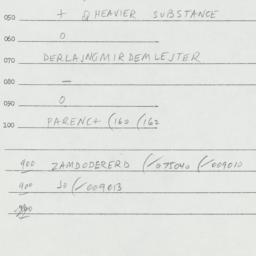 050 + Q HEAVIER SUBSTANCE
060 O
070 DERLAJNGMIRDEMLESTER
080 —
090 O
100 PARENCH (160 (162
900 ZAMDODERERD (/075040 (/009010
900 Jo (/009013